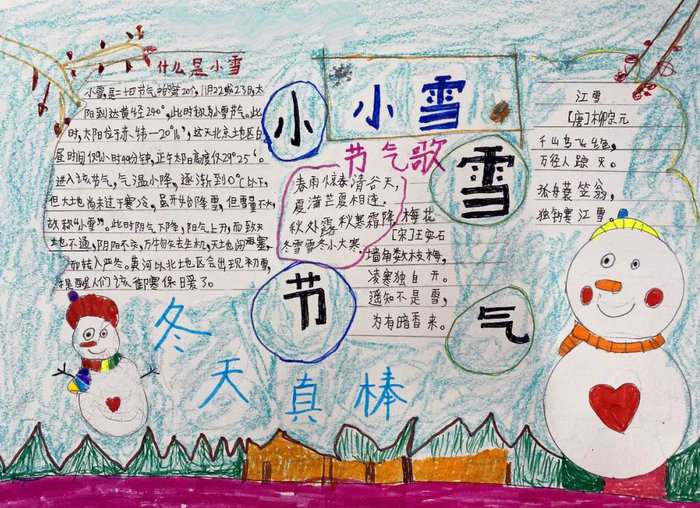 什么是小雪
小雪,是二十四节气的第20个,11月22或23日,太
阳到达黄经240°,此时称为小雪节气。此
时,太阳位于赤纬-20°16′,这天北京地区白
昼时间仅9小时49分钟,正午太阳高度仅29°25′。
进入该节气,气温小降,逐渐到0℃以下,
但大地尚未过于寒冷,虽开始降雪,但雪量不大
故称“小雪”。此时阴气下降,阳气上升,而致天
地不通,阴阳不交,万物失去生机,天地闭塞,
而转入严冬。黄河以北地区会出现初雪,
提醒人们该御寒保暖了。
小雪
小
雪
节
气
节气歌
春雨惊春清谷天,
夏满芒夏暑相连,
秋处露秋寒霜降,
冬雪雪冬小大寒。
梅花
[宋]王安石
墙角数枝梅,
凌寒独自开。
遥知不是雪,
为有暗香来。
江雪
[唐]柳宗元
千山鸟飞绝,
万径人踪灭。
孤舟蓑笠翁,
独钓寒江雪。
冬天真棒